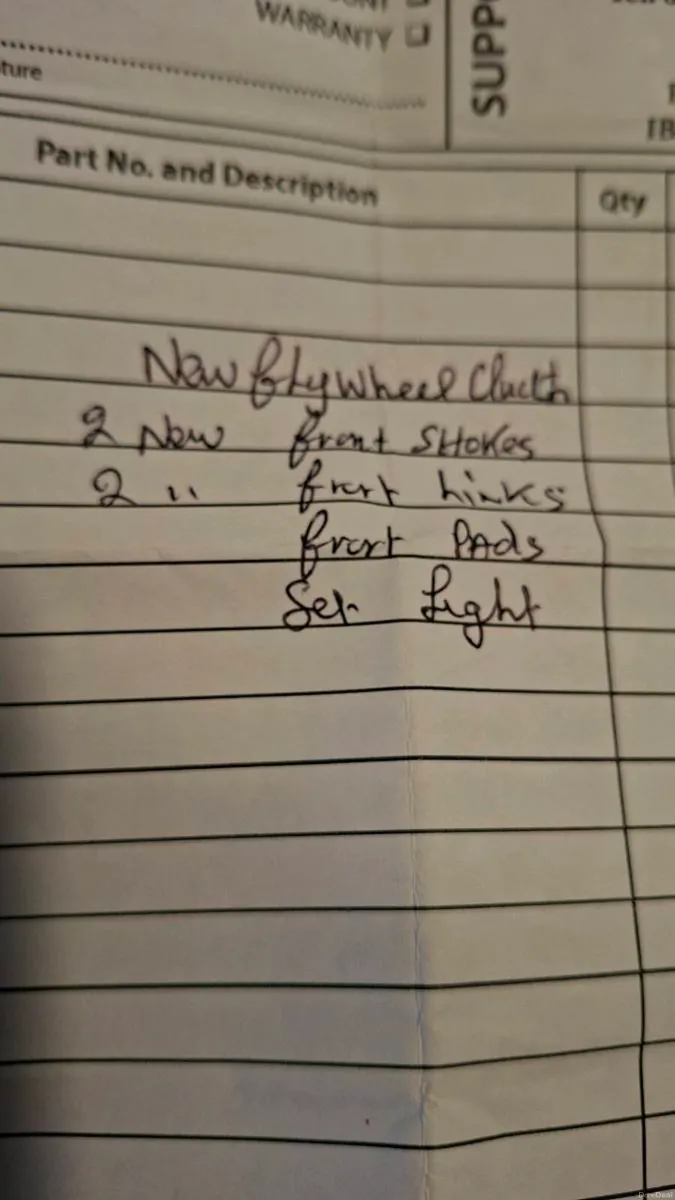 WARRANTY
SUPP
ture
IB
Part No. and Description
Qty
New flywheel Clucth
2 New front SHoKes
2 " front hinks
front PAds
Set Light
DoneDeal